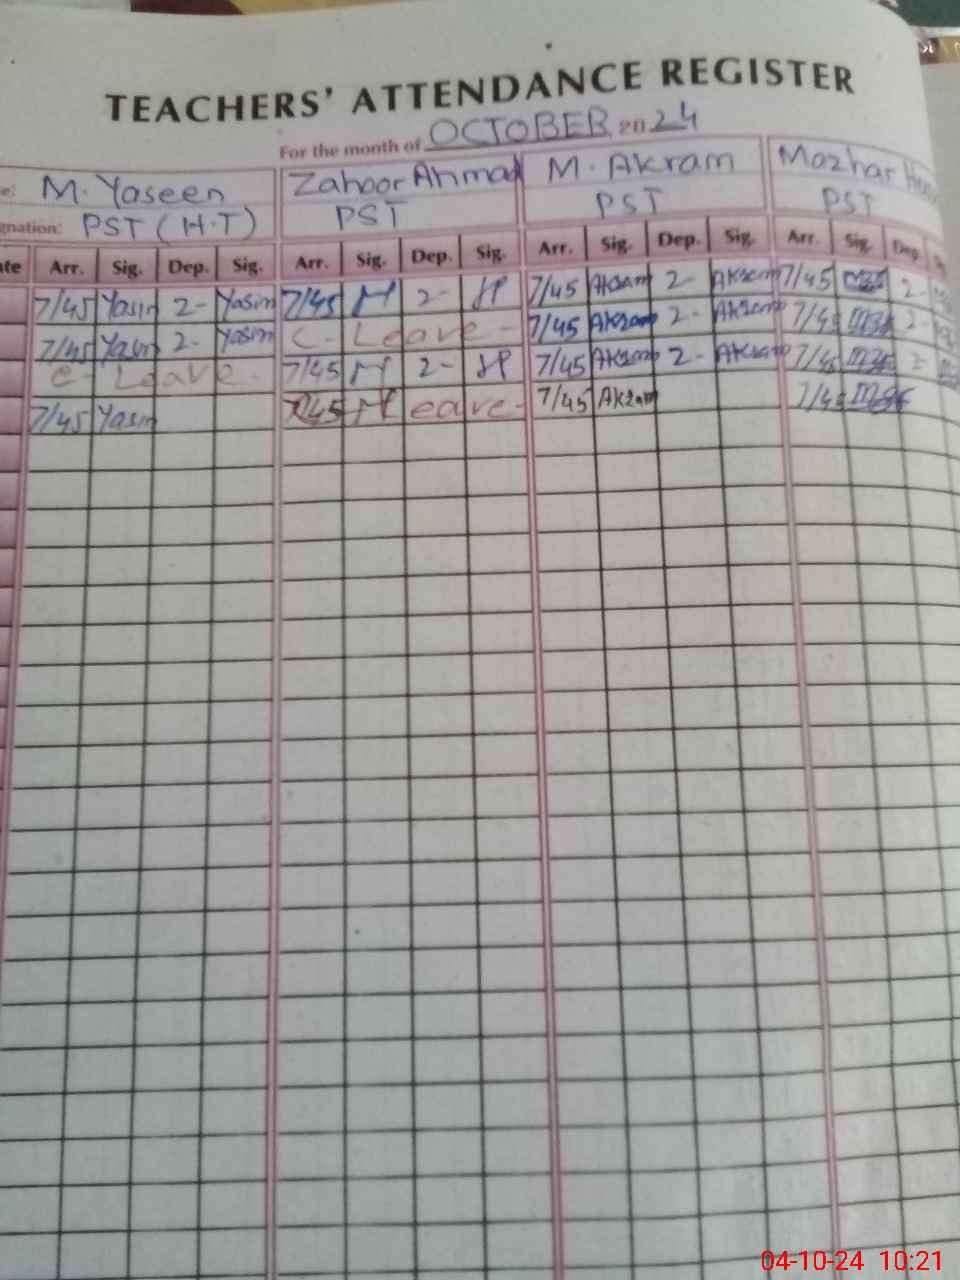 TEACHERS' ATTENDANCE REGISTER
For the month of OCTOBER 2024
e: M. Yaseen Zahoor Ahmad M. Akram Mazhar
gnation: PST (H.T) PST PST PST
ate Arr. Sig. Dep. Sig. Arr. Sig. Dep. Sig. Arr. Sig. Dep. Sig. Arr. Sig. Dep.
7/45 Yasin 2- Yasin 7/45 2- 7/45 Akram 2- Akram 7/45 2-
7/45 Yasin 2- Yasin C- Leave - 7/45 Akram 2- Akram 7/45 2-
C- Leave - 7/45 2- 7/45 Akram 2- Akram 7/45 2-
7/45 Yasin 7/45 eave - 7/45 Akram 7/45
04-10-24 10:21